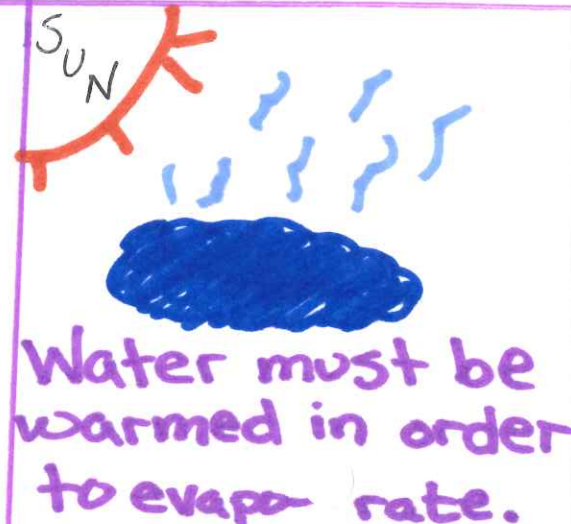 SUN
Water must be
warmed in order
to evapo- rate.